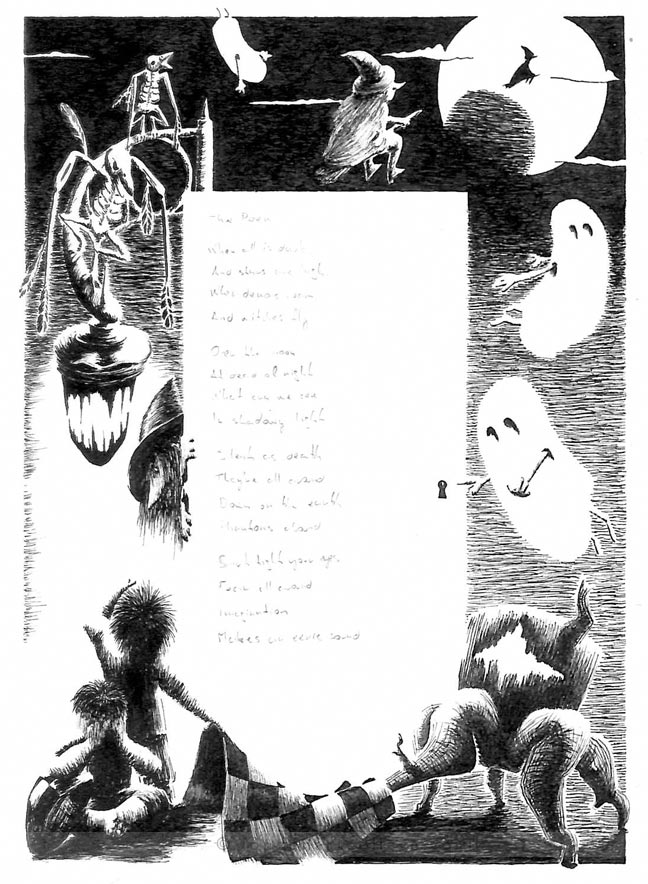 The Poem
When all is dark
And stars are high
Who dances
And witches fly
Over the moon
At dead of night
What can we see
In shadowy light
Silent as death
They're all around
Down on the earth
Phantoms abound
Shut tight your eyes
From all around
Imagination
Makes an eerie sound